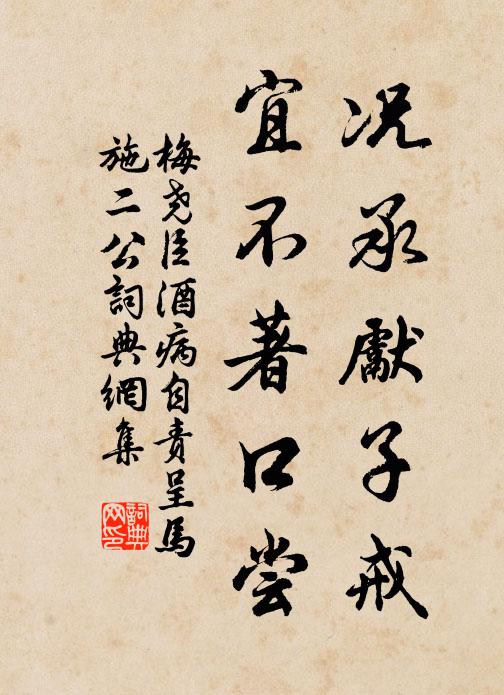 况承獻子戒
宜不著口嘗
梅尧臣酒病自责呈馬
施二公詞典網集
詞典
网印